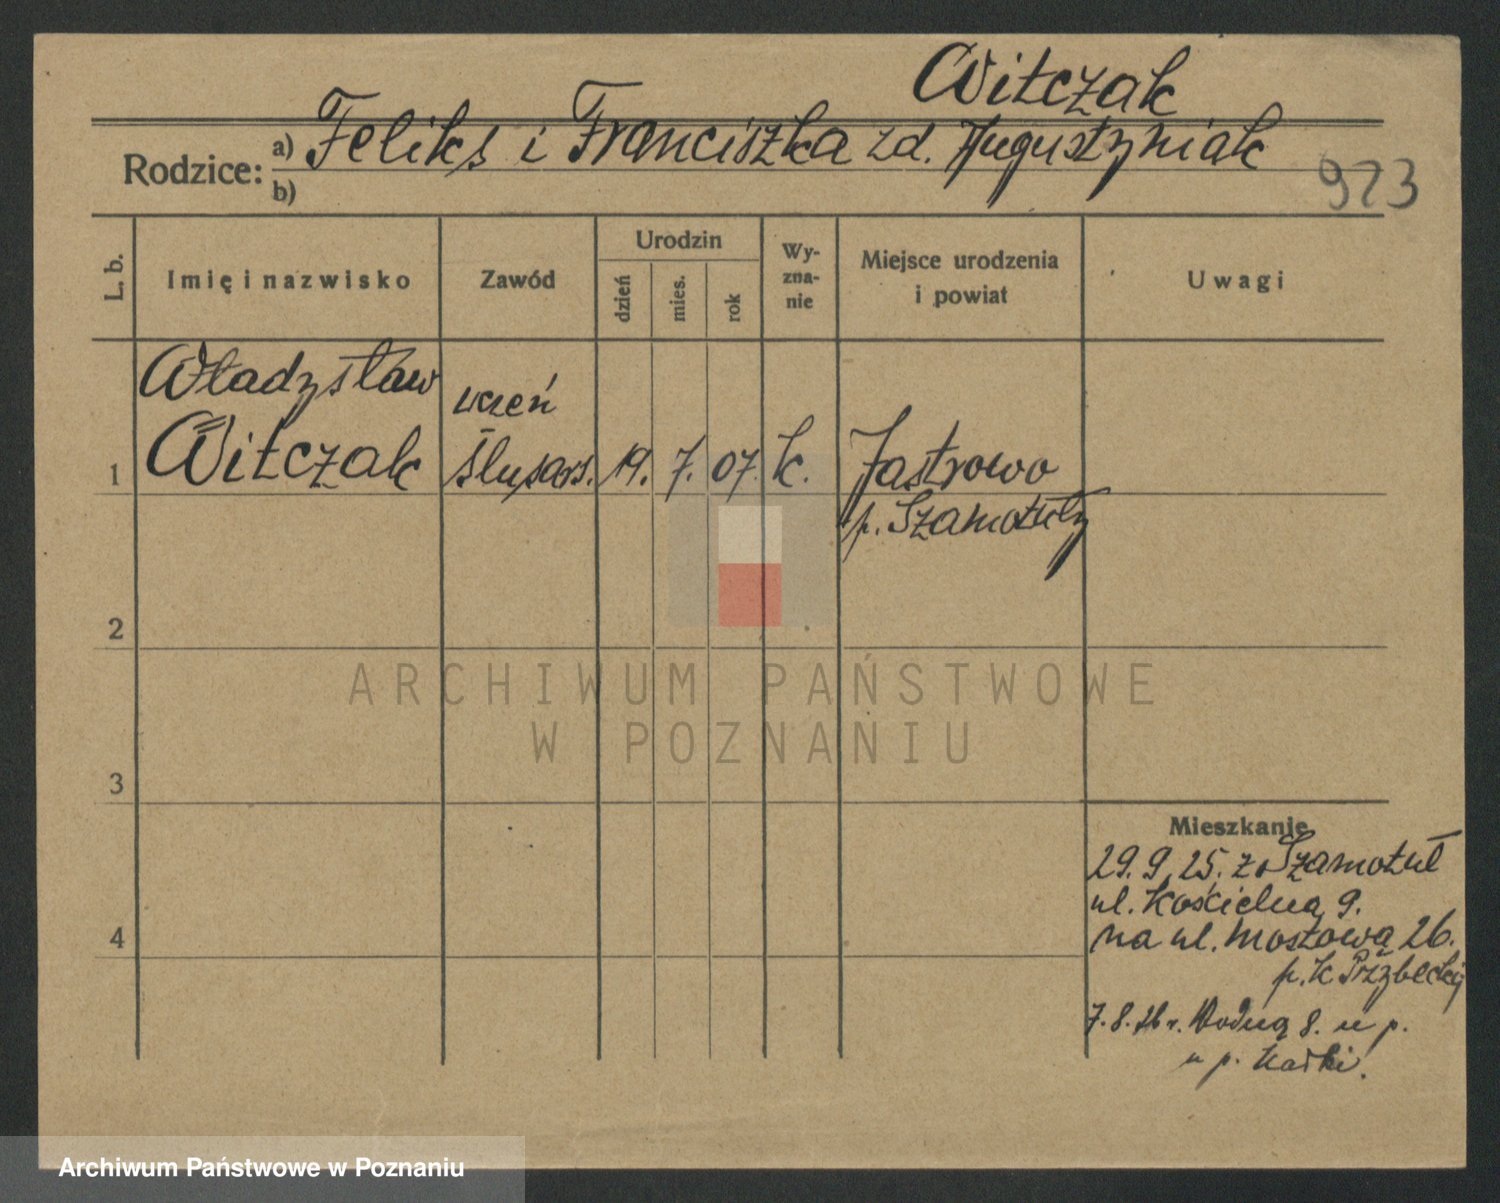 Witczak
Rodzice: a) Feliks i Franciszka zd. Augustyniak
b)
923
L. b.
Imię i nazwisko
Zawód
Urodzin
dzień
mies.
rok
Wy-
zna-
nie
Miejsce urodzenia
i powiat
Uwagi
Władysław
Witczak
uczeń
ślusars.
19. 7. 07 k.
Jastrowo
p. Szamotuły
1
2
3
4
ARCHIWUM PAŃSTWOWE
W POZNANIU
Mieszkanie
29.9.25. z Szamotuł
ul. Kościelną 9.
na ul. Mostową 26.
p. k Przybeckij
7.8.26 r. Wodną 8. u p.
u p. Kaski.
Archiwum Państwowe w Poznaniu